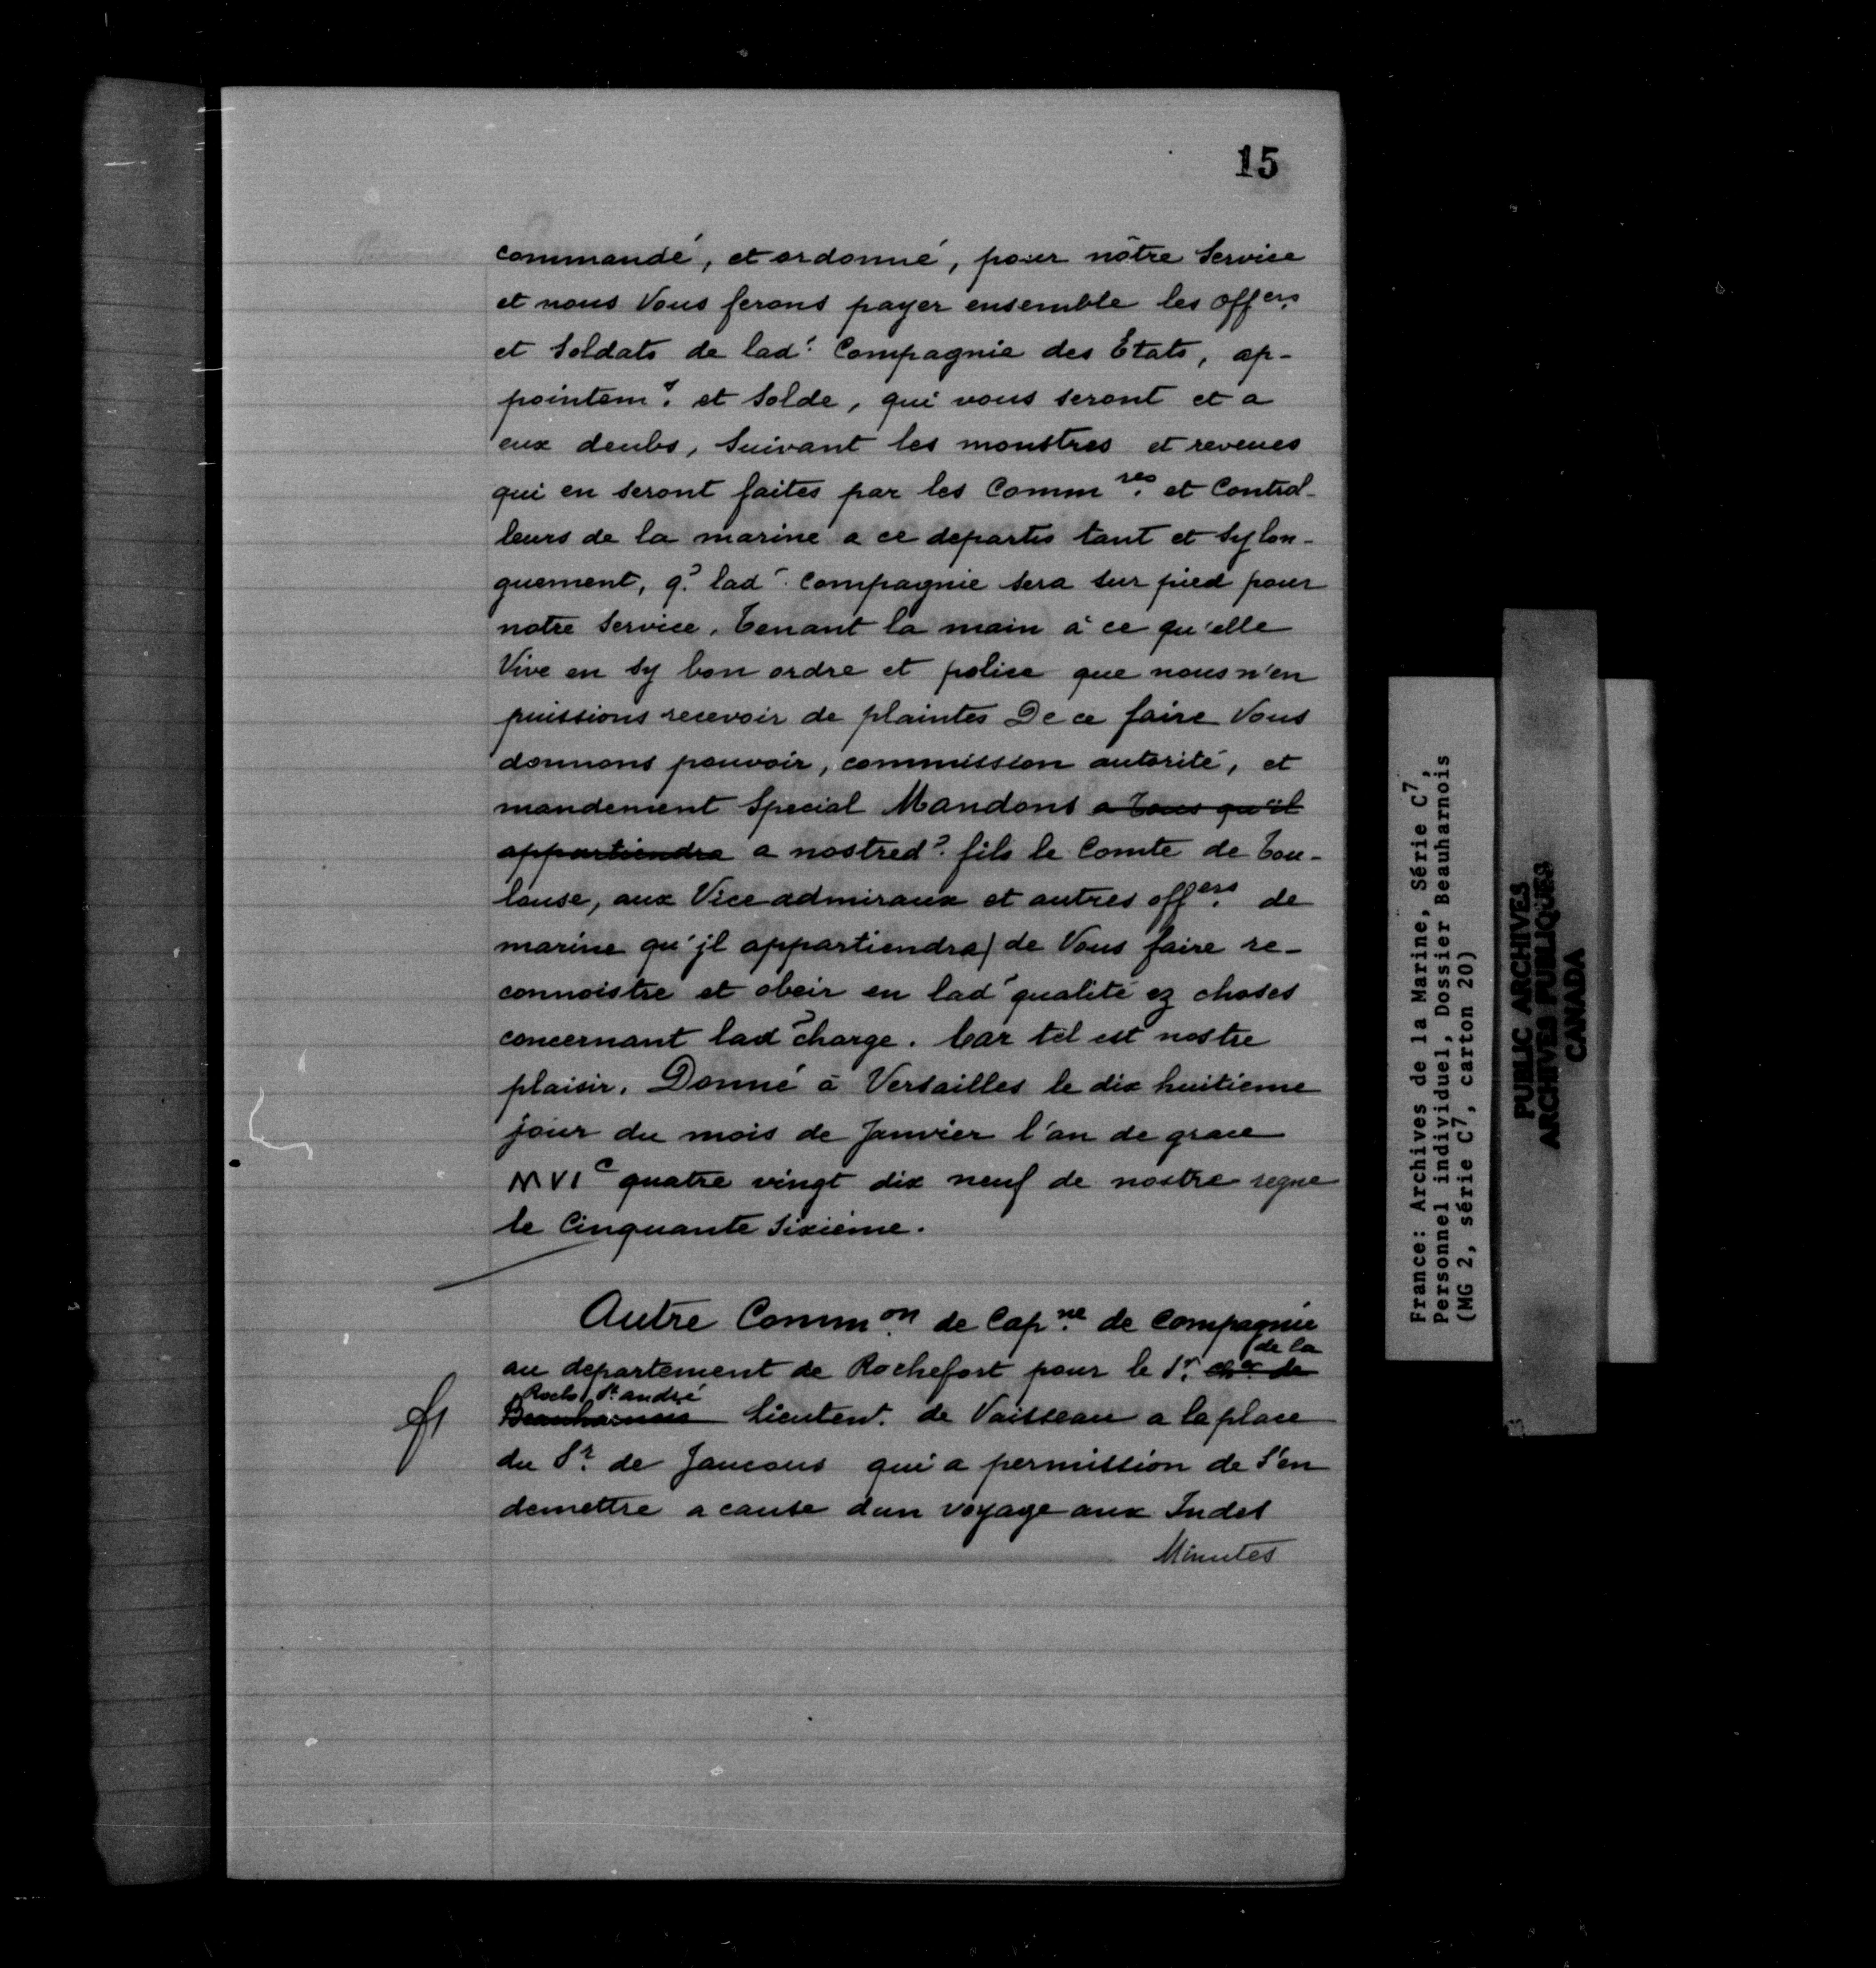 15
commandé, et ordonné, pour nôtre Service
et nous Vous ferons payer ensemble les offers.
et Soldats de lade. Compagnie des Etats, ap-
pointemt. et Solde, qui vous seront et a
eux deubs, Suivant les monstres et reveues
qui en seront faites par les Commres. et Control-
leurs de la marine a ce departis tant et sy lon-
guement, q. lade. Compagnie sera sur pied pour
notre Service. Tenant la main à ce qu'elle
Vive en sy bon ordre et police que nous n'en
puissions recevoir de plaintes De ce faire Vous
donnons pouvoir, commission autorité, et
mandement Special Mandons a tous qu'il
appartiendra a nostred. fils le Comte de Tou-
louse, aux Vice admiraux et autres offers. de
marine qu'jl appartiendra) de Vous faire re-
connoistre et obeir en lade qualité ez choses
concernant lade charge. Car tel est nostre
plaisir. Donné à Versailles le dix huitieme
jour du mois de Janvier l'an de grace
MVIc quatre vingt dix neuf de nostre regne
le Cinquante Sixième.
Autre Common. de Capne. de Compagnie
au departement de Rochefort pour le Sr. cher de
de la
Roche St. andré
Beauharnois Lieutent. de Vaisseau a la place
du Sr. de Jancous qui a permission de S'en
demettre a cause dun voyage aux Indes
Minutes
France: Archives de la Marine, Série C7,
Personnel individuel, Dossier Beauharnois
(MG 2, série C7, carton 20)
PUBLIC ARCHIVES
ARCHIVES PUBLIQUES
CANADA